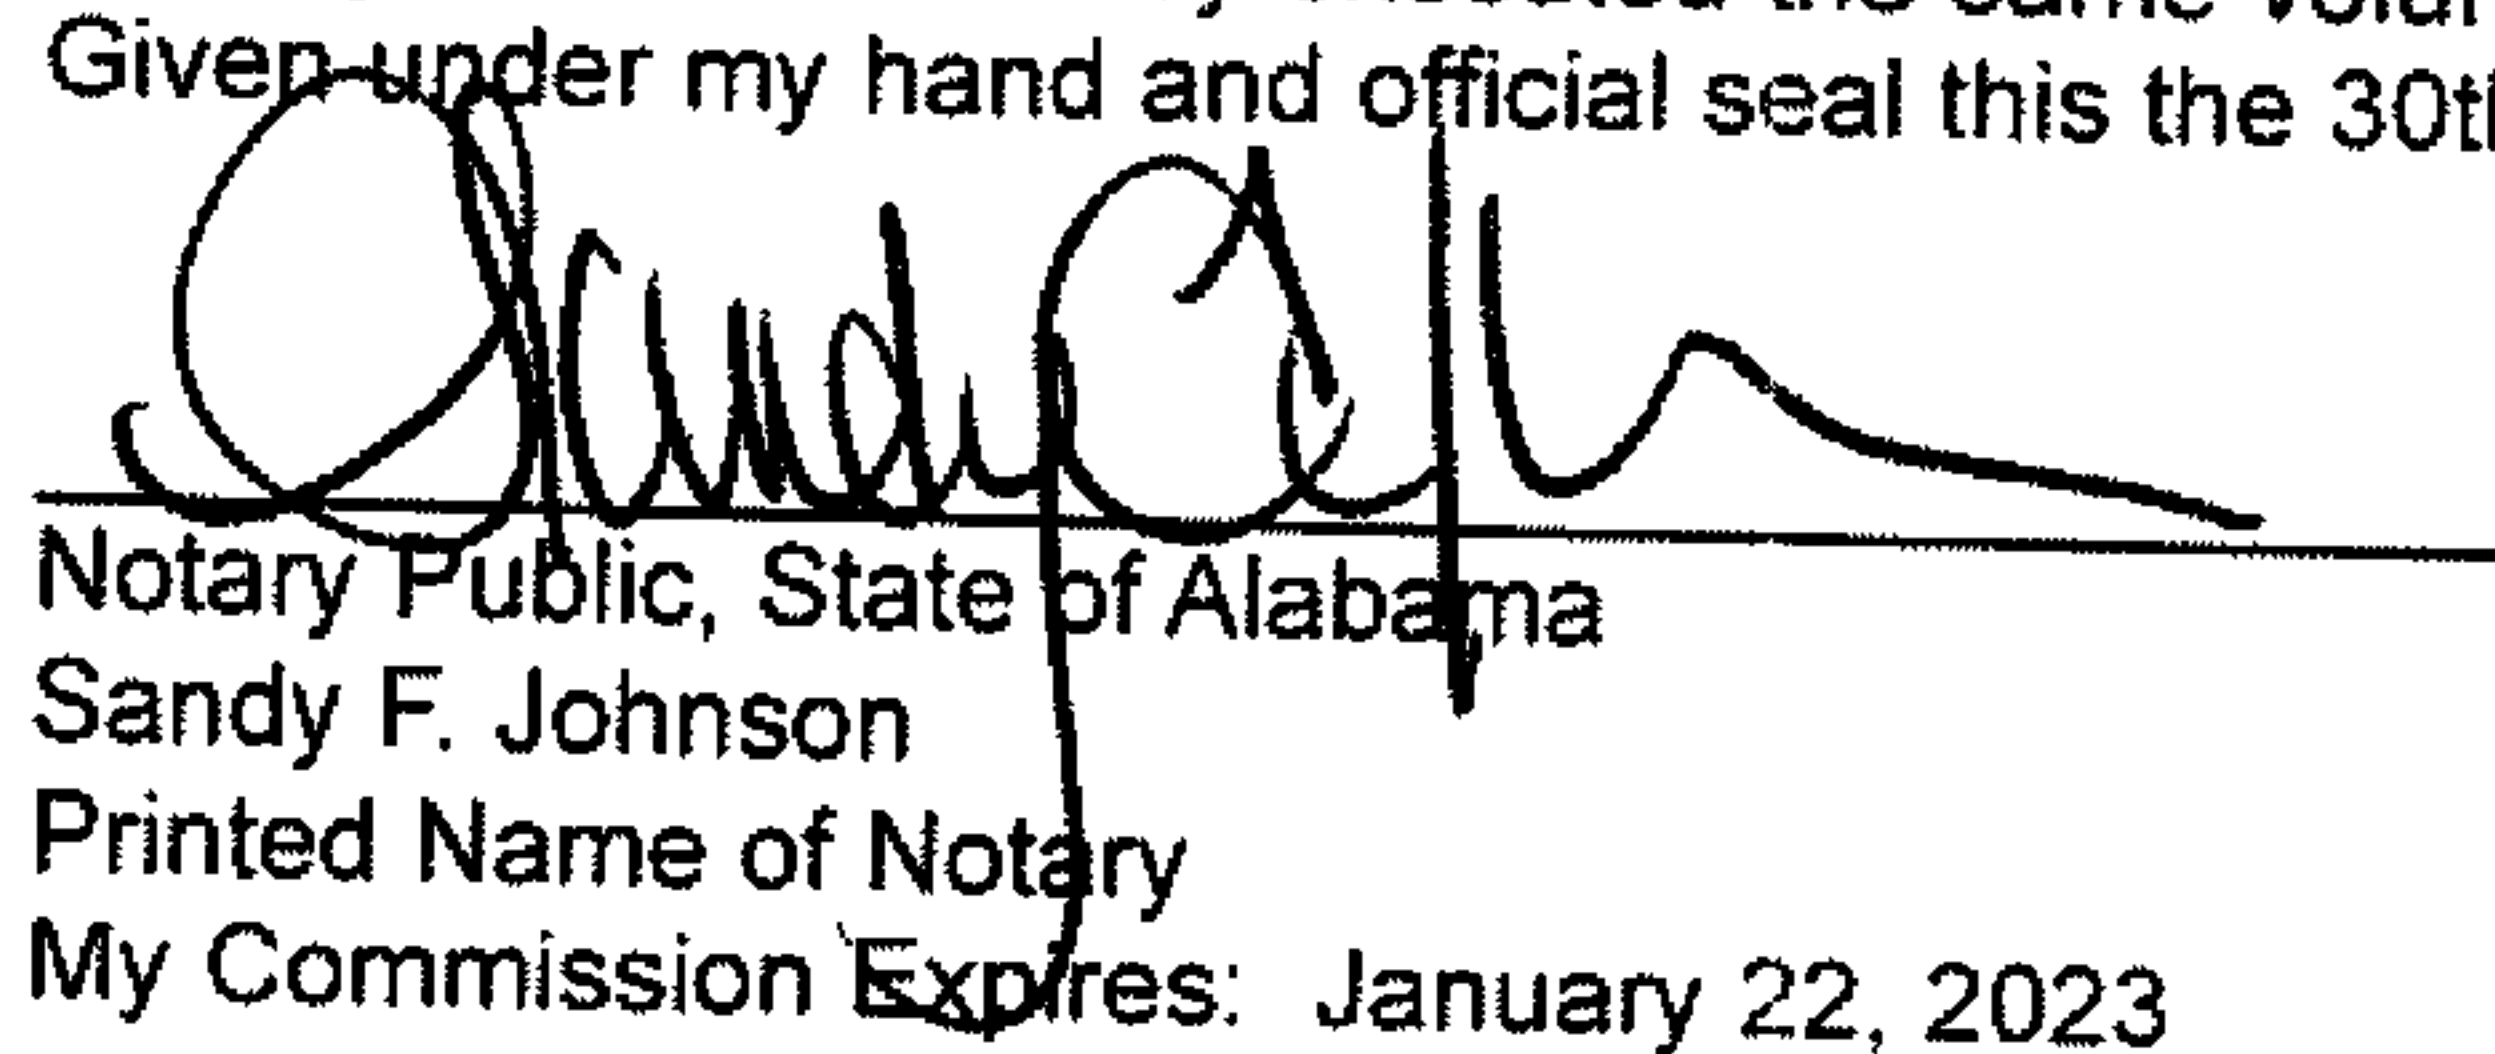 Given under my hand and official seal this the 30th
Notary Public, State of Alabama
Sandy F. Johnson
Printed Name of Notary
My Commission Expires: January 22, 2023